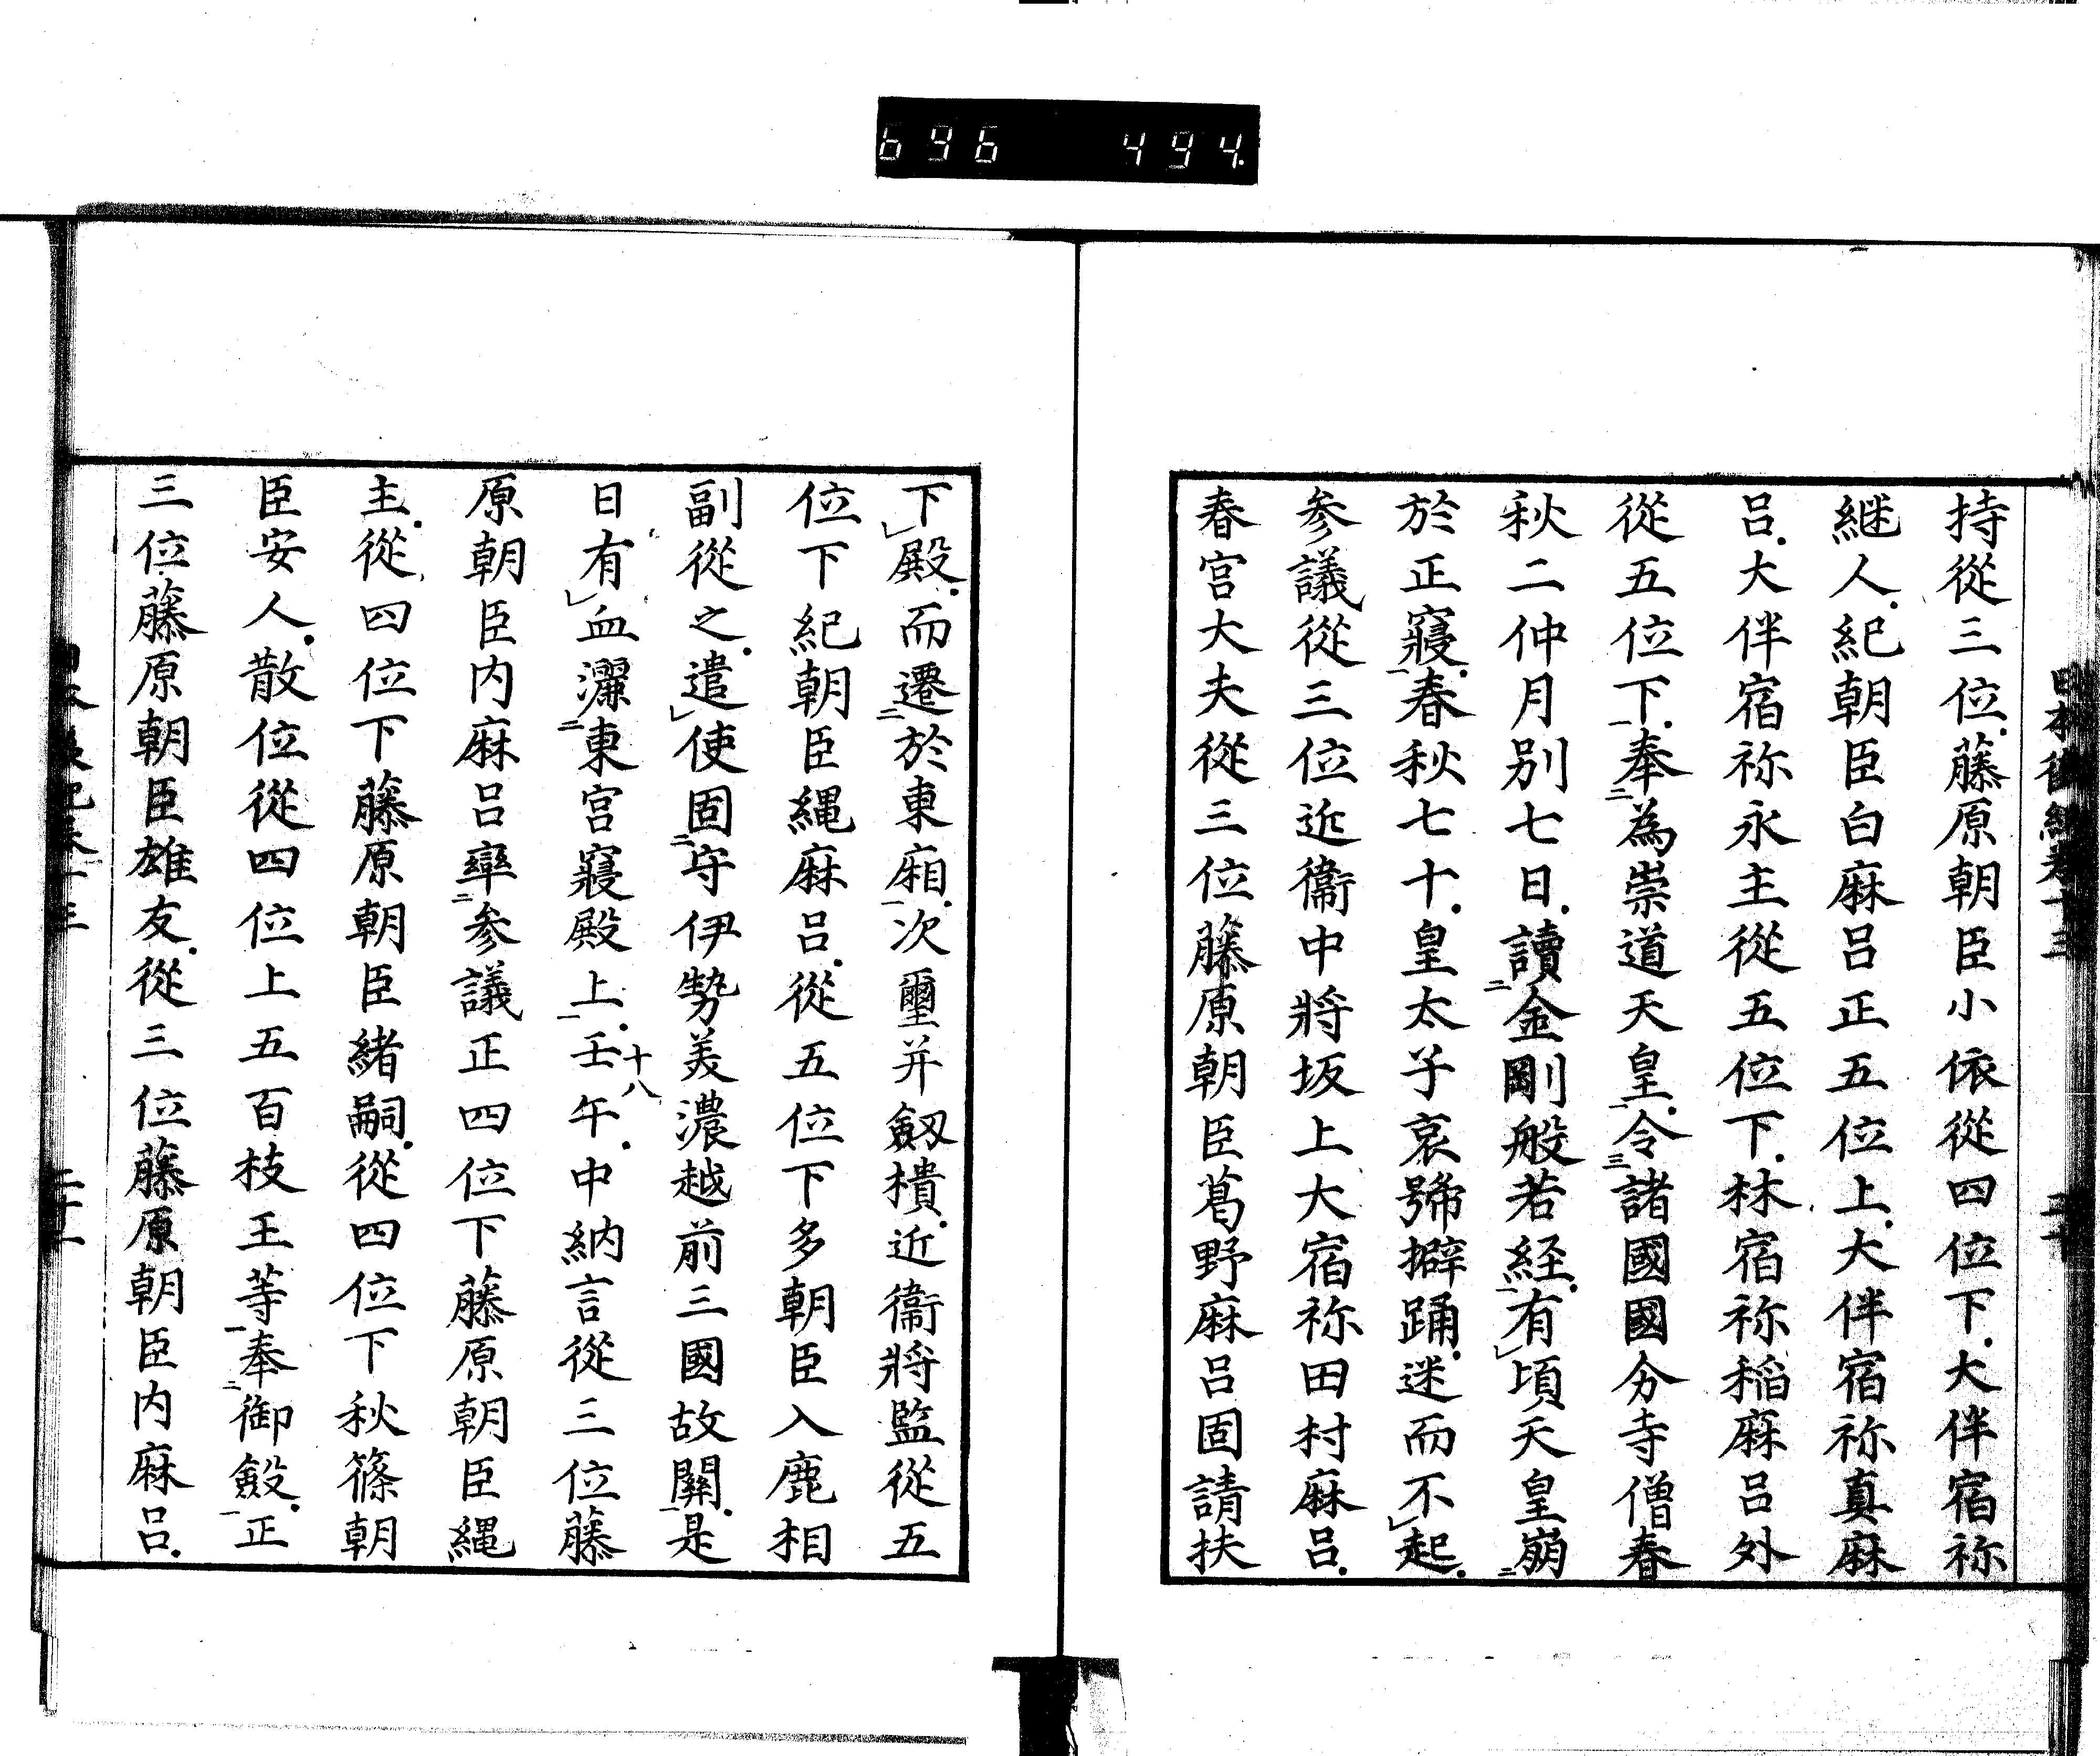 696 494
持從三位藤原朝臣小依從四位下大伴宿祢
継人紀朝臣白麻呂正五位上大伴宿祢真麻
呂大伴宿祢永主從五位下林宿祢稲麻呂外
從五位下奉為崇道天皇令諸國國分寺僧春
秋二仲月别七日讀金剛般若経有頃天皇崩
於正寢春秋七十皇太子哀號擗踊迷而不起
参議從三位近衞中將坂上大宿祢田村麻呂
春宫大夫從三位藤原朝臣葛野麻呂固請扶
下殿而遷於東廂次璽并劔樻近衞將監從五
位下紀朝臣縄麻呂從五位下多朝臣入鹿相
副從之遣使固守伊勢美濃越前三國故關是
日有血灑東宫寢殿上壬午中納言從三位藤
十八
原朝臣内麻呂率参議正四位下藤原朝臣縄
主從四位下藤原朝臣緒嗣從四位下秋篠朝
臣安人散位從四位上五百枝王等奉御斂正
三位藤原朝臣雄友從三位藤原朝臣内麻呂